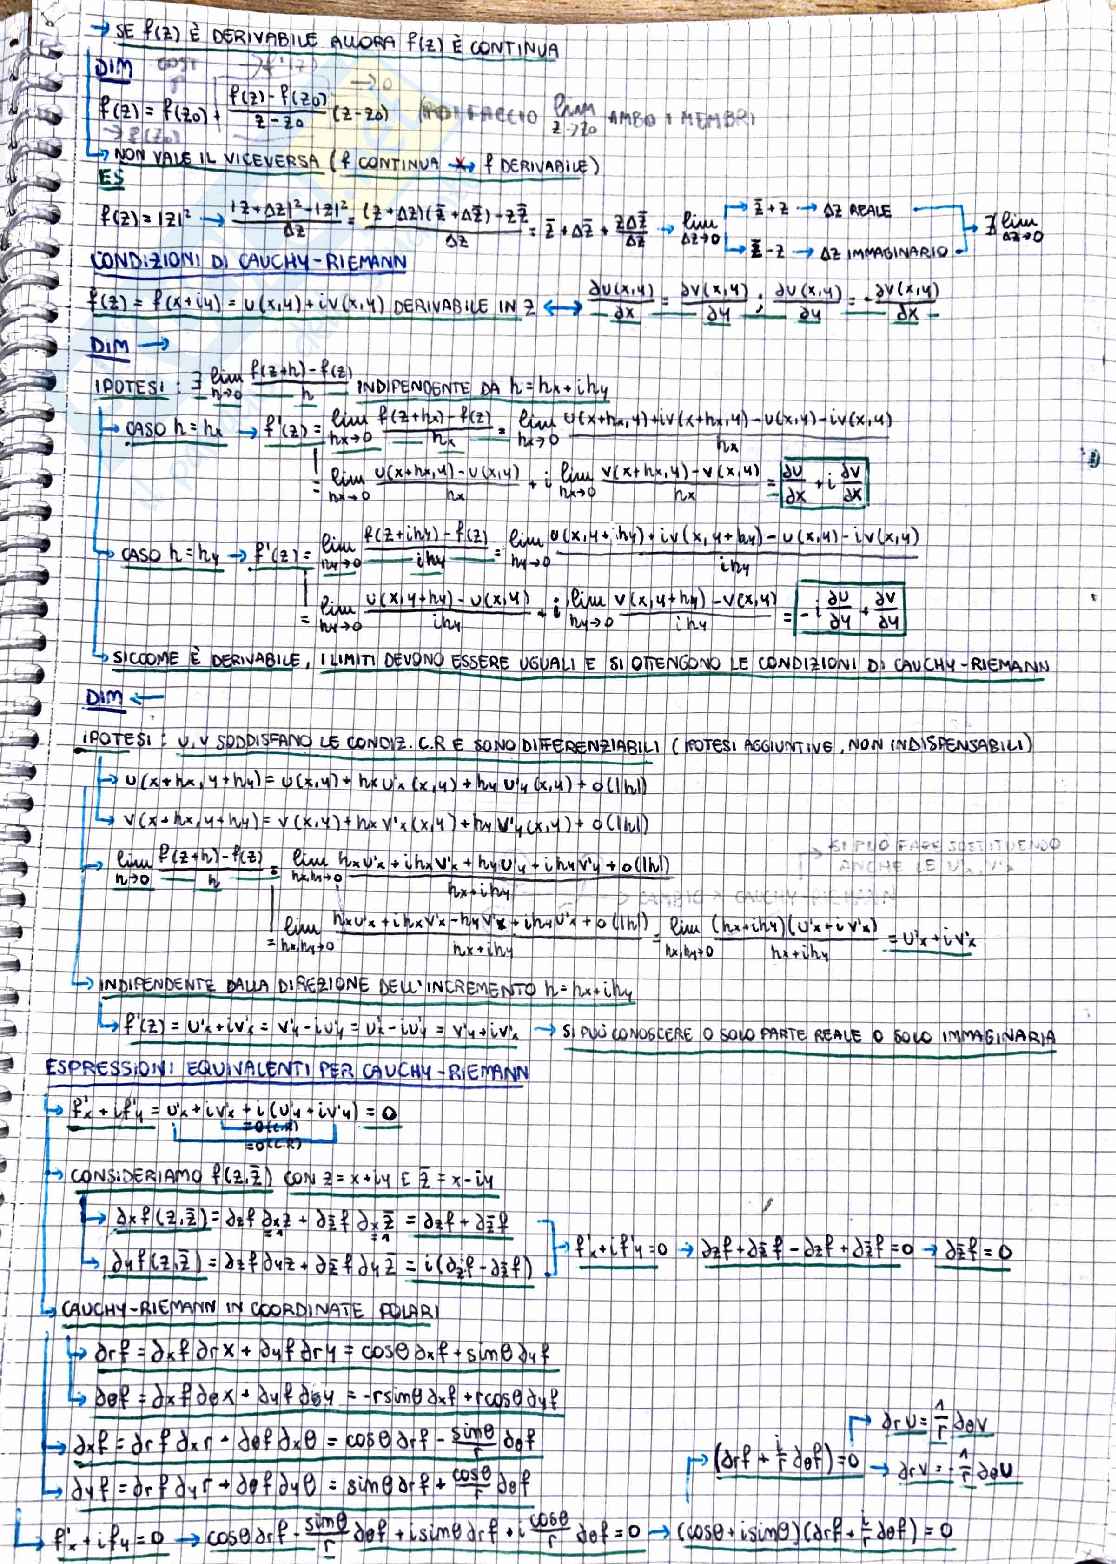 → SE f(z) È DERIVABILE ALLORA f(z) È CONTINUA
DIM
f(z) = f(z₀) + (f(z) - f(z₀))/(z - z₀) (z - z₀) (POI FACCIO lim z→z₀ AMBO I MEMBRI
COST → f'(z) → 0
→ f(z₀)
→ NON VALE IL VICEVERSA (f CONTINUA ↛ f DERIVABILE)
ES
f(z) = |z|² → (|z+Δz|² - |z|²)/Δz = ((z+Δz)(z̄+Δz̄) - zz̄)/Δz = z̄ + Δz̄ + zΔz̄/Δz → lim Δz→0 → z̄+z → Δz REALE
→ z̄-z → Δz IMMAGINARIO → ∄ lim Δz→0
CONDIZIONI DI CAUCHY-RIEMANN
f(z) = f(x+iy) = u(x,y) + iv(x,y) DERIVABILE IN z ↔ ∂u(x,y)/∂x = ∂v(x,y)/∂y ; ∂u(x,y)/∂y = -∂v(x,y)/∂x
DIM →
IPOTESI : ∃ lim h→0 (f(z+h) - f(z))/h INDIPENDENTE DA h = hx + ihy
→ CASO h = hx → f'(z) = lim hx→0 (f(z+hx) - f(z))/hx = lim hx→0 (u(x+hx,y) + iv(x+hx,y) - u(x,y) - iv(x,y))/hx
= lim hx→0 (u(x+hx,y) - u(x,y))/hx + i lim hx→0 (v(x+hx,y) - v(x,y))/hx = ∂u/∂x + i ∂v/∂x
→ CASO h = hy → f'(z) = lim hy→0 (f(z+ihy) - f(z))/ihy = lim hy→0 (u(x,y+ihy) + iv(x,y+hy) - u(x,y) - iv(x,y))/ihy
= lim hy→0 (u(x,y+hy) - u(x,y))/ihy + i lim hy→0 (v(x,y+hy) - v(x,y))/ihy = -i ∂u/∂y + ∂v/∂y
→ SICCOME È DERIVABILE, I LIMITI DEVONO ESSERE UGUALI E SI OTTENGONO LE CONDIZIONI DI CAUCHY-RIEMANN
DIM ←
IPOTESI : u,v SODDISFANO LE CONDIZ. C.R E SONO DIFFERENZIABILI (IPOTESI AGGIUNTIVE, NON INDISPENSABILI)
→ u(x+hx,y+hy) = u(x,y) + hx u'x(x,y) + hy u'y(x,y) + o(|h|)
→ v(x+hx,y+hy) = v(x,y) + hx v'x(x,y) + hy v'y(x,y) + o(|h|)
→ SI PUÒ FARE SOSTITUENDO
ANCHE LE u'x, v'x
→ lim h→0 (f(z+h) - f(z))/h = lim hx,hy→0 (hx u'x + ihx v'x + hy u'y + ihy v'y + o(|h|))/(hx+ihy)
→ CAMBIO → CAUCHY-RIEMANN
= lim hx,hy→0 (hx u'x + ihx v'x - hy v'x + ihy u'x + o(|h|))/(hx+ihy) = lim hx,hy→0 (hx+ihy)(u'x+iv'x)/(hx+ihy) = u'x + iv'x
→ INDIPENDENTE DALLA DIREZIONE DELL'INCREMENTO h = hx + ihy
→ f'(z) = u'x + iv'x = v'y - iu'y = u'x - iu'y = v'y + iv'x → SI PUÒ CONOSCERE O SOLO PARTE REALE O SOLO IMMAGINARIA
ESPRESSIONI EQUIVALENTI PER CAUCHY-RIEMANN
→ f'x + if'y = u'x + iv'x + i(u'y + iv'y) = 0
=0 (C.R)
=0 (C.R)
→ CONSIDERIAMO f(z,z̄) CON z = x+iy E z̄ = x-iy
→ ∂xf(z,z̄) = ∂zf ∂xz + ∂z̄f ∂xz̄ = ∂zf + ∂z̄f
=1 =1
→ ∂yf(z,z̄) = ∂zf ∂yz + ∂z̄f ∂yz̄ = i(∂zf - ∂z̄f) → f'x + if'y = 0 → ∂zf + ∂z̄f - ∂zf + ∂z̄f = 0 → ∂z̄f = 0
→ CAUCHY-RIEMANN IN COORDINATE POLARI
→ ∂rf = ∂xf ∂rx + ∂yf ∂ry = cosθ ∂xf + sinθ ∂yf
→ ∂θf = ∂xf ∂θx + ∂yf ∂θy = -rsinθ ∂xf + rcosθ ∂yf
→ ∂xf = ∂rf ∂xr + ∂θf ∂xθ = cosθ ∂rf - sinθ/r ∂θf
→ ∂yf = ∂rf ∂yr + ∂θf ∂yθ = sinθ ∂rf + cosθ/r ∂θf
→ (∂rf + i/r ∂θf) = 0 → ∂ru = 1/r ∂θv
→ ∂rv = -1/r ∂θu
→ f'x + if'y = 0 → cosθ ∂rf - sinθ/r ∂θf + isinθ ∂rf + i cosθ/r ∂θf = 0 → (cosθ + isinθ)(∂rf + i/r ∂θf) = 0